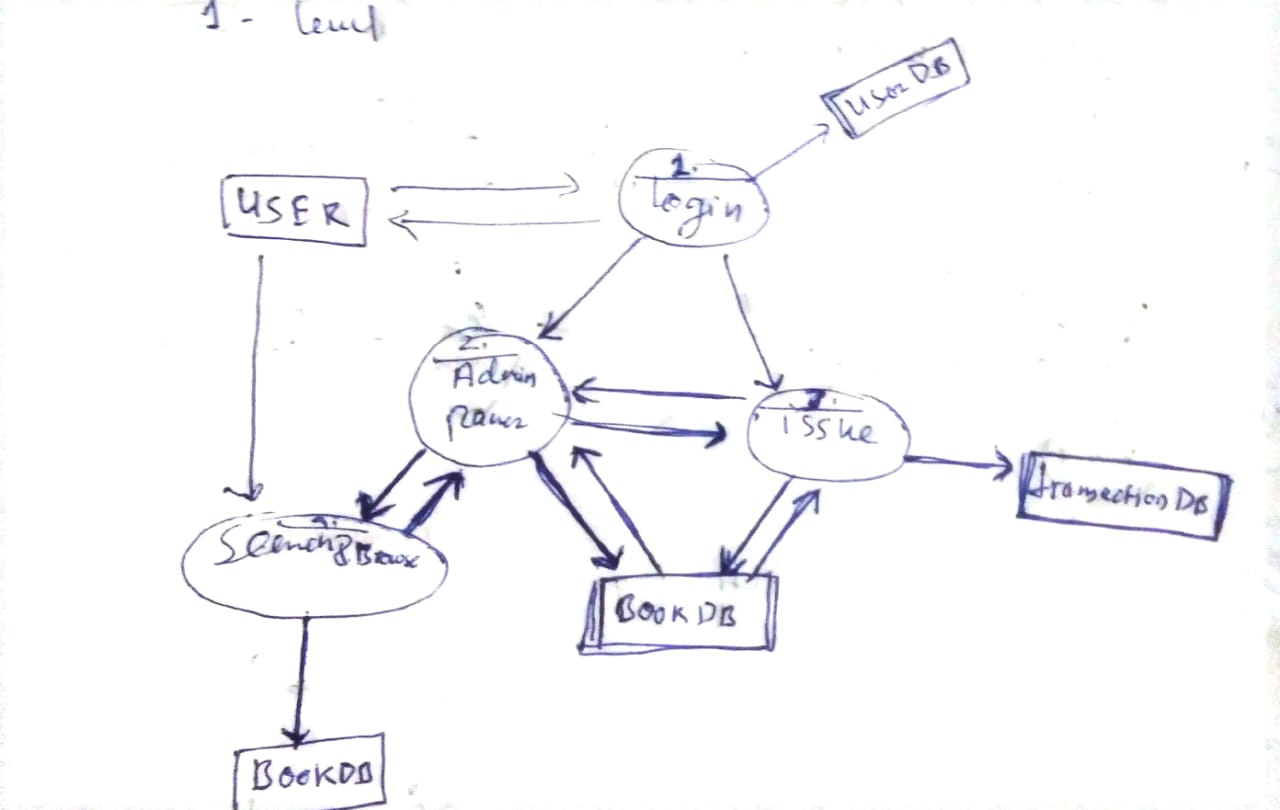 1 - level
User DB
1.
USER
login
2.
Admin
3.
issue
transectionDB
Search & Browse
BOOK DB
BOOKDB